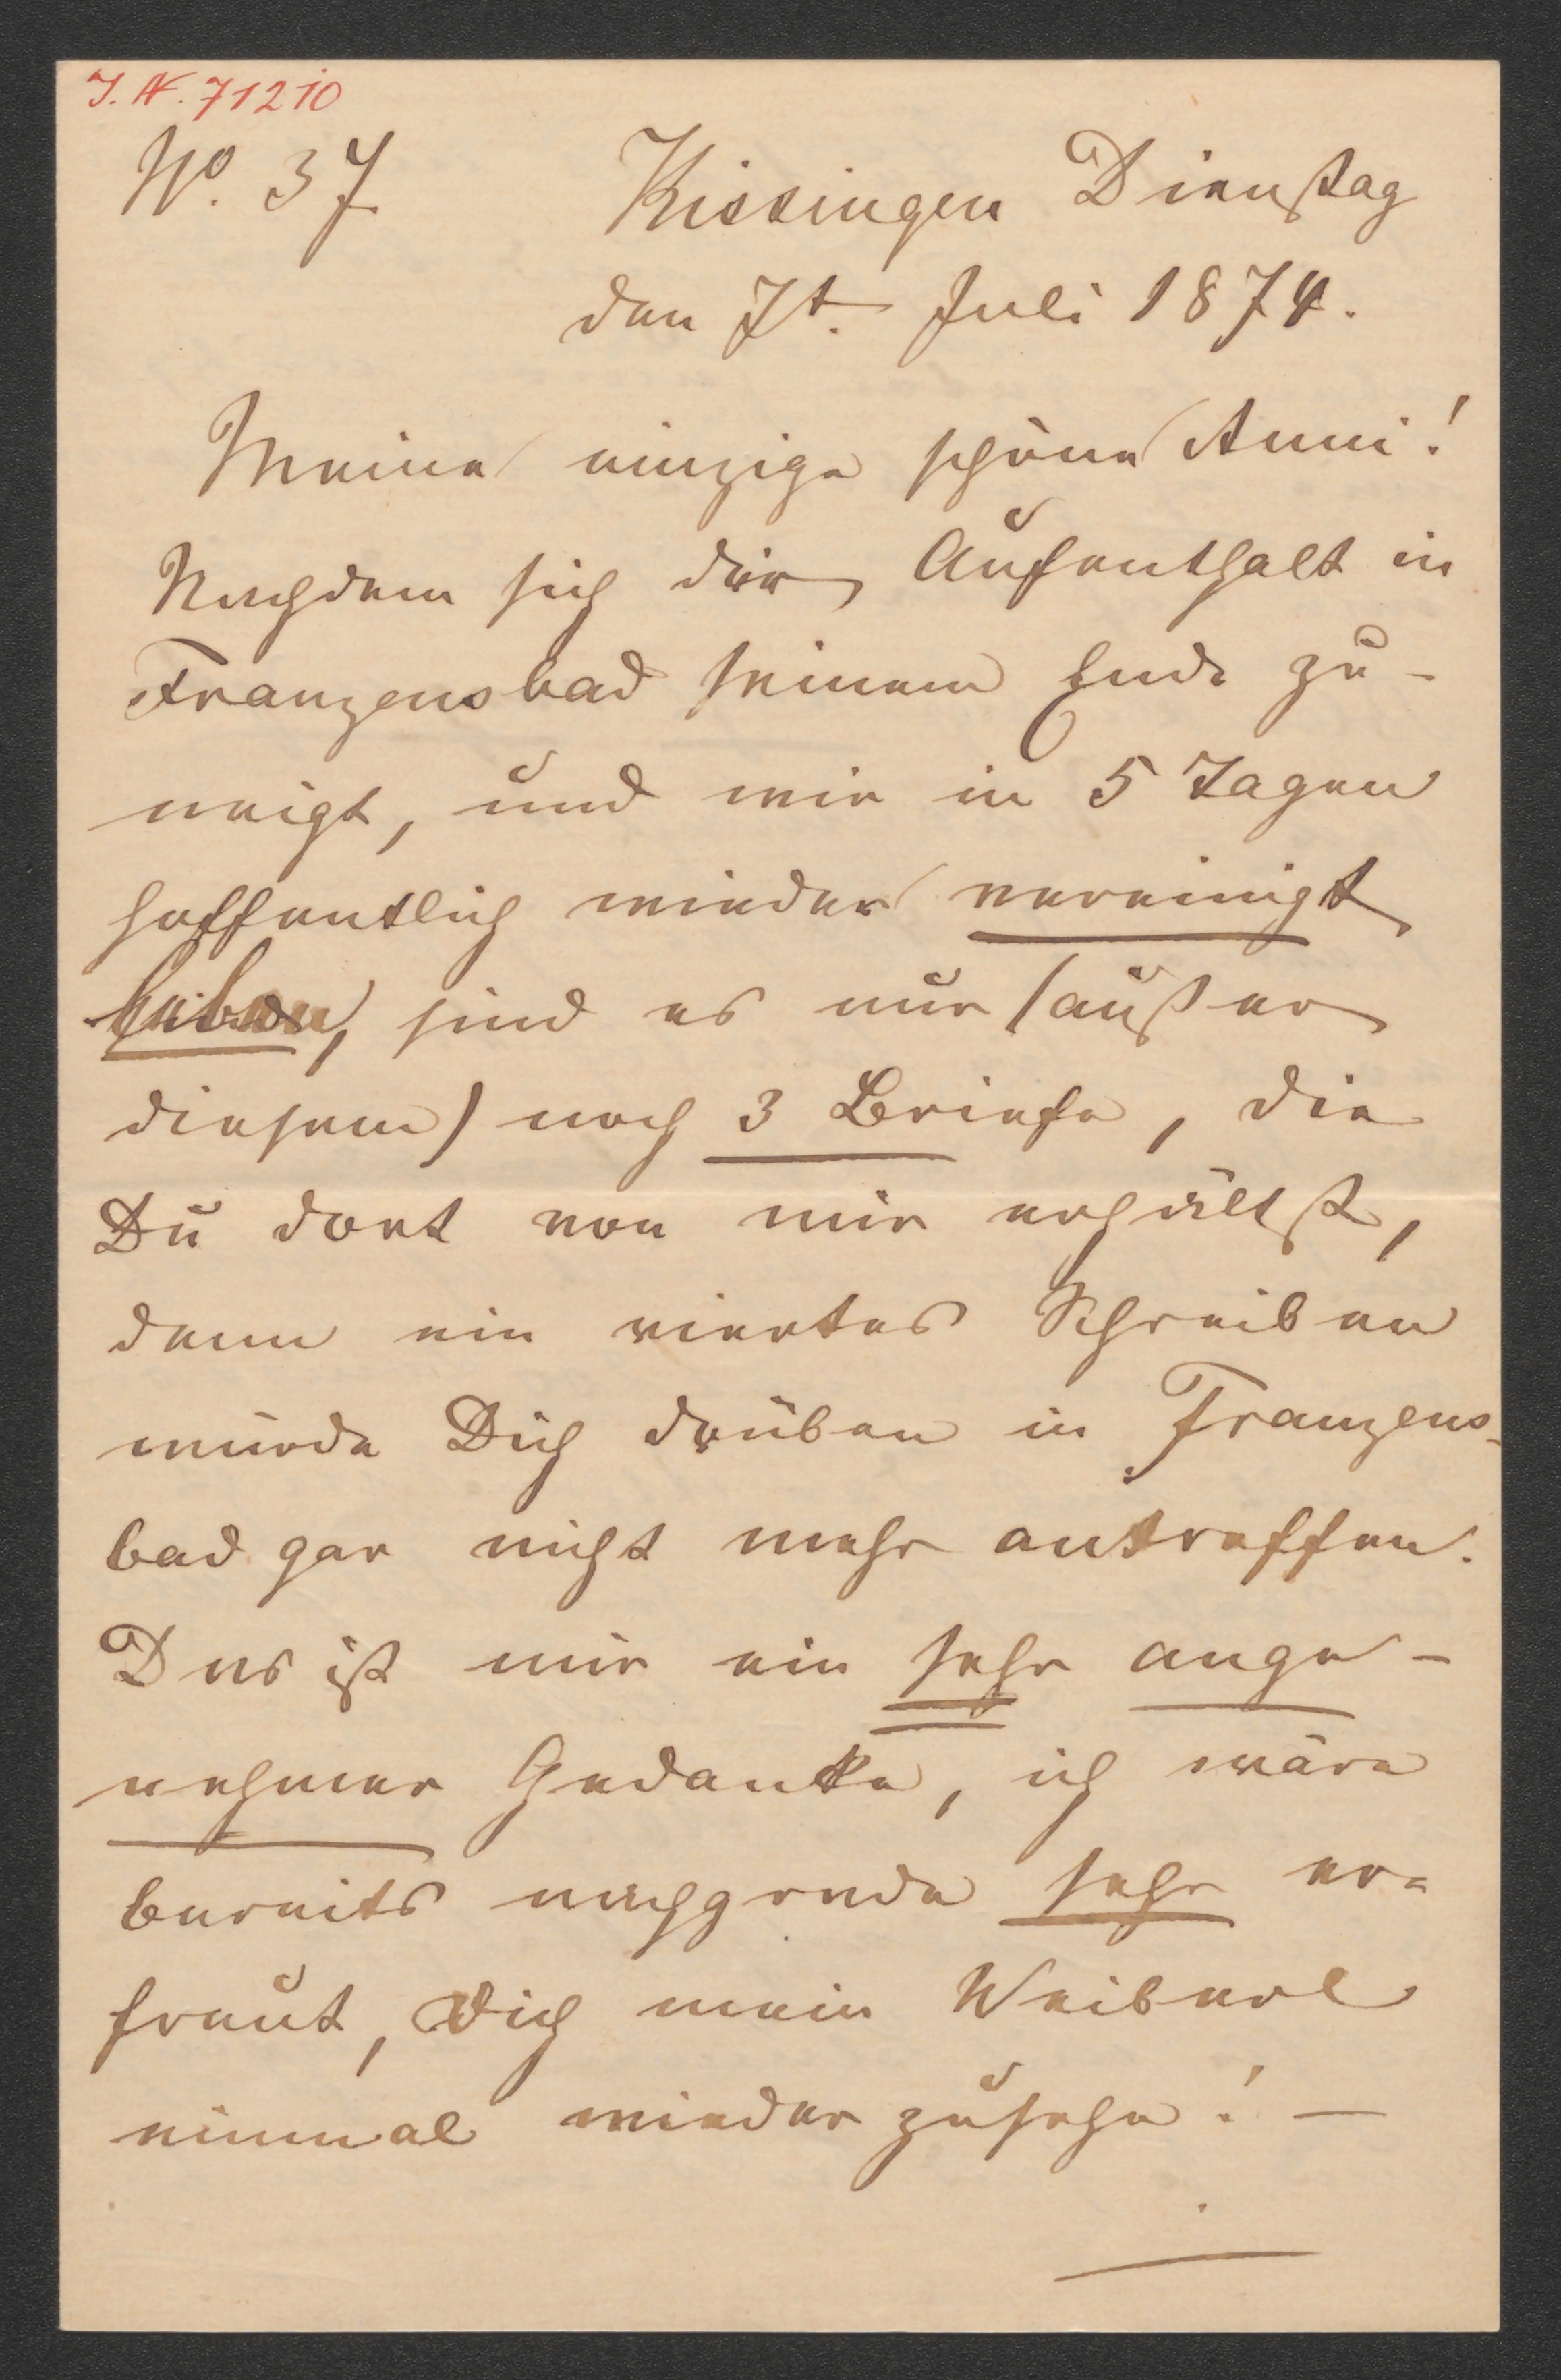 I. N. 71210
No. 37
Kissingen Dienstag
den 7t. Juli 1874.
Meine einzige schöne Anni!
Nachdem sich der Aufenthalt in
Franzensbad seinem Ende zu-
neigt, und wir in 5 Tagen
hoffentlich wieder vereinigt
sind es nur (außer
diesem) noch 3 Briefe, die
Du dort von mir erhältst,
denn ein viertes Schreiben
würde Dich drüben in Franzens-
bad gar nicht mehr antreffen.
Das ist mir ein sehr ange-
nehmer Gedanke, ich wäre
bereits nachgrade sehr er-
freut, Dich mein Weiberl
einmal wieder zusehe! —